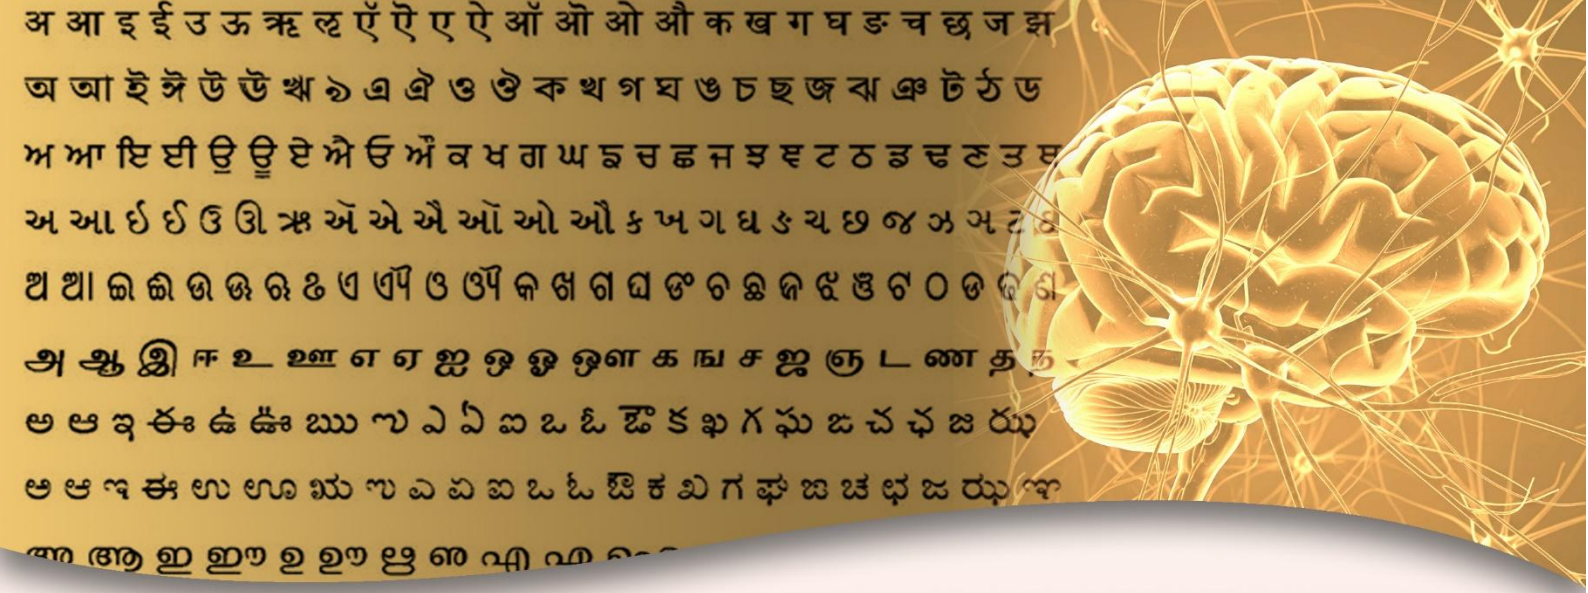 अ आ इ ई उ ऊ ऋ ऌ ऍ ऎ ए ऐ ऑ ऒ ओ औ क ख ग घ ङ च छ ज झ
অ আ ই ঈ উ ঊ ঋ ঌ এ ঐ ও ঔ ক খ গ ঘ ঙ চ ছ জ ঝ ঞ ট ঠ ড
ਅ ਆ ਇ ਈ ਉ ਊ ਏ ਐ ਓ ਔ ਕ ਖ ਗ ਘ ਙ ਚ ਛ ਜ ਝ ਞ ਟ ਠ ਡ ਢ ਣ ਤ ਥ
અ આ ઇ ઈ ઉ ઊ ઋ ઍ એ ઐ ઑ ઓ ઔ ક ખ ગ ઘ ઙ ચ છ જ ઝ ઞ ટ ઠ
ଅ ଆ ଇ ଈ ଉ ଊ ଋ ଌ ଏ ଐ ଓ ଔ କ ଖ ଗ ଘ ଙ ଚ ଛ ଜ ଝ ଞ ଟ ଠ ଡ ଢ ଣ
அ ஆ இ ஈ உ ஊ எ ஏ ஐ ஒ ஓ ஔ க ங ச ஜ ஞ ட ண த ந
అ ఆ ఇ ఈ ఉ ఊ ఋ ఌ ఎ ఏ ఐ ఒ ఓ ఔ క ఖ గ ఘ ఙ చ ఛ జ ఝ
ಅ ಆ ಇ ಈ ಉ ಊ ಋ ಌ ಎ ಏ ಐ ಒ ಓ ಔ ಕ ಖ ಗ ಘ ಙ ಚ ಛ ಜ ಝ ಞ
അ ആ ഇ ഈ ഉ ഊ ഋ ഌ എ ഏ